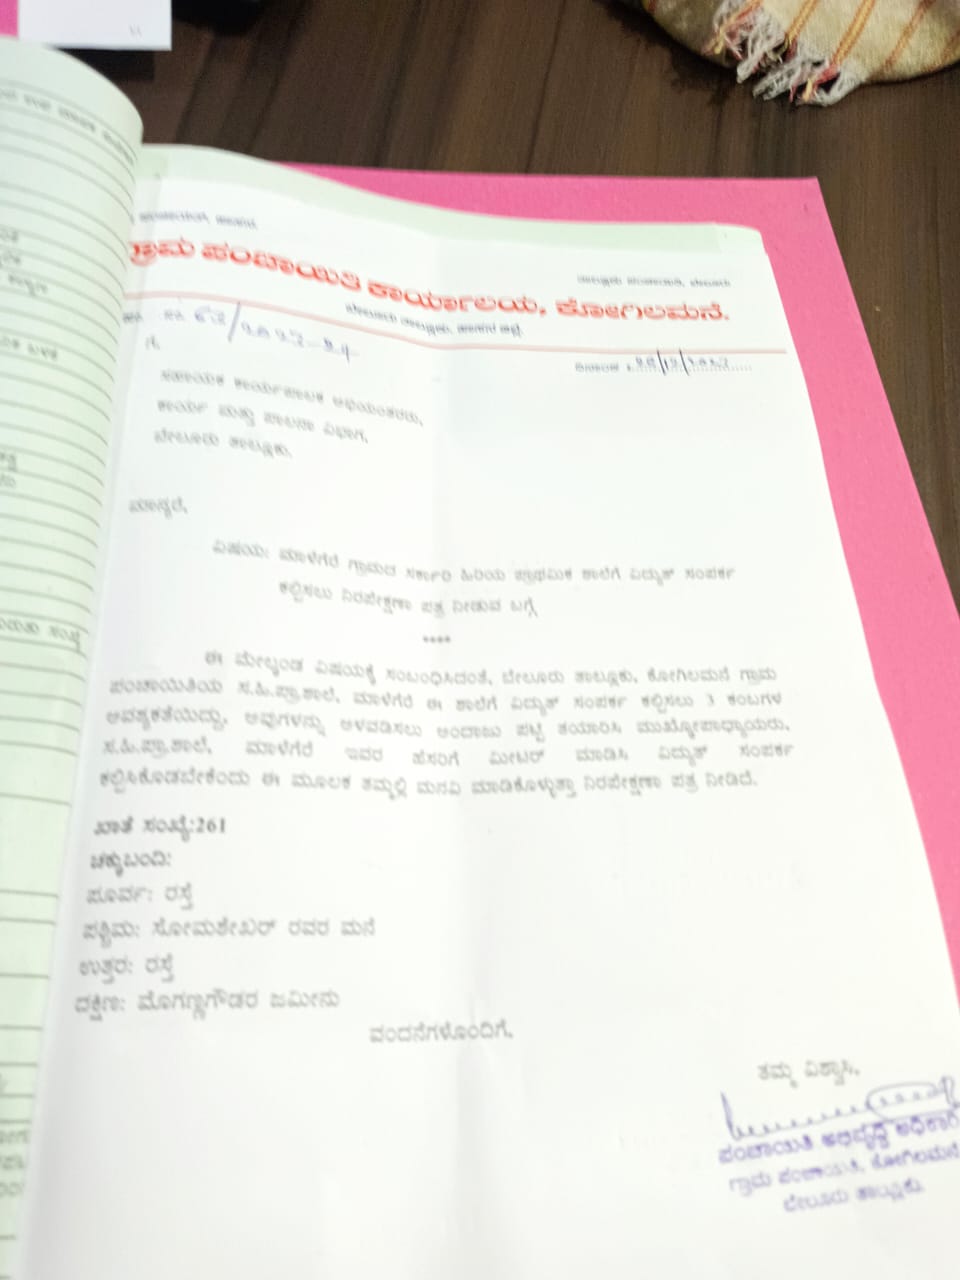 ಗ್ರಾಮ ಪಂಚಾಯಿತಿ ಕಾರ್ಯಾಲಯ, ಕೋಗಿಲಮನೆ.
ಬೇಲೂರು ತಾಲ್ಲೂಕು, ಹಾಸನ ಜಿಲ್ಲೆ.
ದಿನಾಂಕ
ಸಹಾಯಕ ಕಾರ್ಯಪಾಲಕ ಅಭಿಯಂತರರು,
ಕಾರ್ಯ ಮತ್ತು ಪಾಲನಾ ವಿಭಾಗ,
ಬೇಲೂರು ತಾಲ್ಲೂಕು.
ಮಾನ್ಯರೆ,
ವಿಷಯ: ಮಾಳೆಗೆರೆ ಗ್ರಾಮದ ಸರ್ಕಾರಿ ಹಿರಿಯ ಪ್ರಾಥಮಿಕ ಶಾಲೆಗೆ ವಿದ್ಯುತ್ ಸಂಪರ್ಕ
ಕಲ್ಪಿಸಲು ನಿರಪೇಕ್ಷಣಾ ಪತ್ರ ನೀಡುವ ಬಗ್ಗೆ
****
ಈ ಮೇಲ್ಕಂಡ ವಿಷಯಕ್ಕೆ ಸಂಬಂಧಿಸಿದಂತೆ, ಬೇಲೂರು ತಾಲ್ಲೂಕು, ಕೋಗಿಲಮನೆ ಗ್ರಾಮ
ಪಂಚಾಯಿತಿಯ ಸ.ಹಿ.ಪ್ರಾ.ಶಾಲೆ, ಮಾಳೆಗೆರೆ ಈ ಶಾಲೆಗೆ ವಿದ್ಯುತ್ ಸಂಪರ್ಕ ಕಲ್ಪಿಸಲು 3 ಕಂಬಗಳ
ಅವಶ್ಯಕತೆಯಿದ್ದು, ಅವುಗಳನ್ನು ಅಳವಡಿಸಲು ಅಂದಾಜು ಪಟ್ಟಿ ತಯಾರಿಸಿ ಮುಖ್ಯೋಪಾಧ್ಯಾಯರು,
ಸ.ಹಿ.ಪ್ರಾ.ಶಾಲೆ, ಮಾಳೆಗೆರೆ ಇವರ ಹೆಸರಿಗೆ ಮೀಟರ್ ಮಾಡಿಸಿ ವಿದ್ಯುತ್ ಸಂಪರ್ಕ
ಕಲ್ಪಿಸಿಕೊಡಬೇಕೆಂದು ಈ ಮೂಲಕ ತಮ್ಮಲ್ಲಿ ಮನವಿ ಮಾಡಿಕೊಳ್ಳುತ್ತಾ ನಿರಪೇಕ್ಷಣಾ ಪತ್ರ ನೀಡಿದೆ.
ಖಾತೆ ಸಂಖ್ಯೆ:261
ಚಕ್ಕುಬಂದಿ:
ಪೂರ್ವ: ರಸ್ತೆ
ಪಶ್ಚಿಮ: ಸೋಮಶೇಖರ್ ರವರ ಮನೆ
ಉತ್ತರ: ರಸ್ತೆ
ದಕ್ಷಿಣ: ಮೊಗಣ್ಣಗೌಡರ ಜಮೀನು
ವಂದನೆಗಳೊಂದಿಗೆ,
ತಮ್ಮ ವಿಶ್ವಾಸಿ,
ಪಂಚಾಯಿತಿ ಅಭಿವೃದ್ಧಿ ಅಧಿಕಾರಿ
ಗ್ರಾಮ ಪಂಚಾಯಿತಿ, ಕೋಗಿಲಮನೆ
ಬೇಲೂರು ತಾಲ್ಲೂಕು.